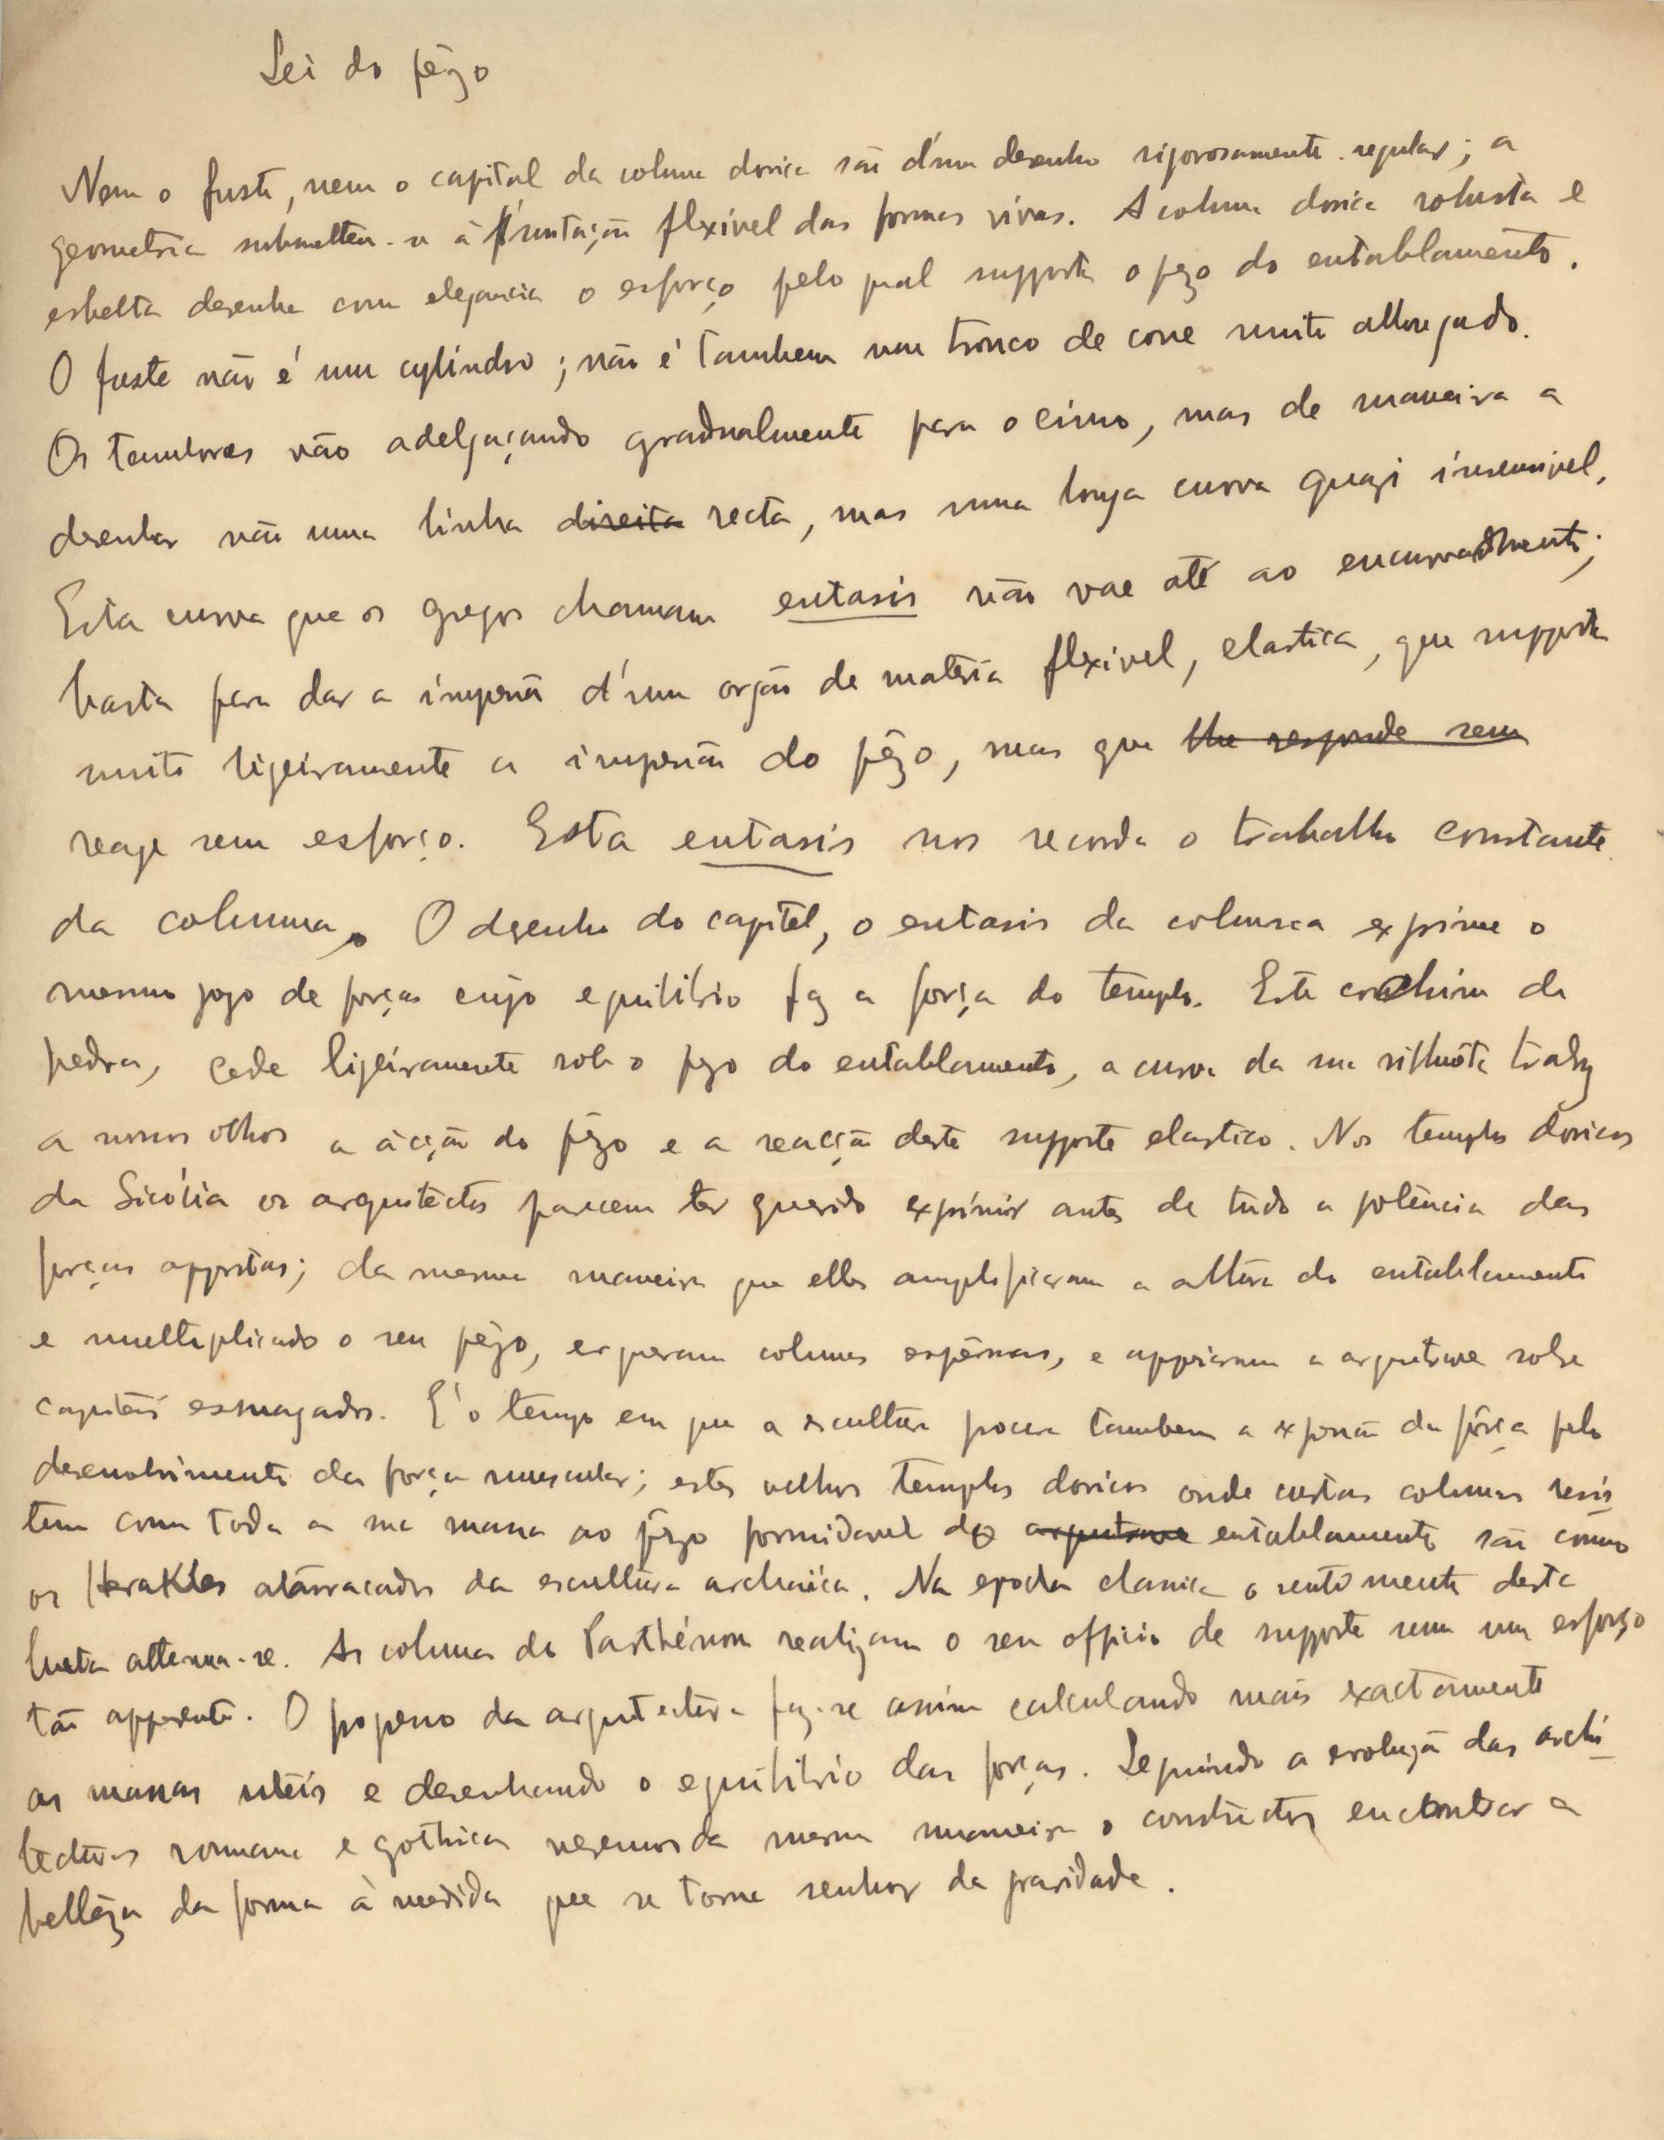 Lei do pêzo
Nem o fuste, nem o capital da coluna dorica são d'um desenho rigorosamente regular; a
geometria submetteu-se á imitação flexivel das formas vivas. A coluna dorica robusta e
esbelta desenha com elegancia o esforço pelo qual supporta o pezo do entablamento.
O fuste não é um cylindro; não é tambem um tronco de cone muito allongado.
Os tambores vão adelgaçando gradualmente para o cimo, mas de maneira a
desenhar não uma linha direita recta, mas uma longa curva quazi insensivel.
Esta curva que os gregos chamam entasis não vae até ao encurvamento;
basta para dar a impresão d'um orgão de materia flexivel, elastica, que supporta
muito ligeiramente a impresão do pêzo, mas que lhe responde sem
reage sem esforço. Esta entasis nos recorda o trabalho constante
da columna. O dezenho do capitel, o entasis da columna exprime o
mesmo jogo de forças cujo equilibrio faz a força do templo. Este coxim de
pedra, cede ligeiramente sob o pezo do entablamento, a curva da sua silhuêta traduz
a nossos olhos a acção do pêzo e a reacção deste supporte elastico. Nos templos doricos
da Sicilia os arquitectos parecem ter querido exprimir antes de tudo a potência das
forças oppostas; da mesma maneira que elles amplificaram a altura do entablamento
e multiplicado o seu pêzo, ergueram colunas espêssas, e appoiaram a arquitrave sobre
capiteis esmagados. É o tempo em que a escultura procura tambem a expresão da fôrça pelo
desenvolvimento da força muscular; estes velhos templos doricos onde certas colunas resis
tem com toda a sua massa ao pêzo formidavel do arquitrave entablamento são como
os Herakles atarracados da escultura archaica. Na epocha classica o sentimento desta
lucta attenua-se. As colunas do Parthénon realizam o seu officio de supporte sem um esforço
tão apparente. O progresso da arquitectura faz-se assim calculando mais exactamente
as massas uteis e desenhando o equilibrio das forças. Seguindo a evolução das archi
tecturas romana e gothica veremos da mesma maneira o constructor encontrar a
bellêza da forma á medida que se torna senhor da gravidade.